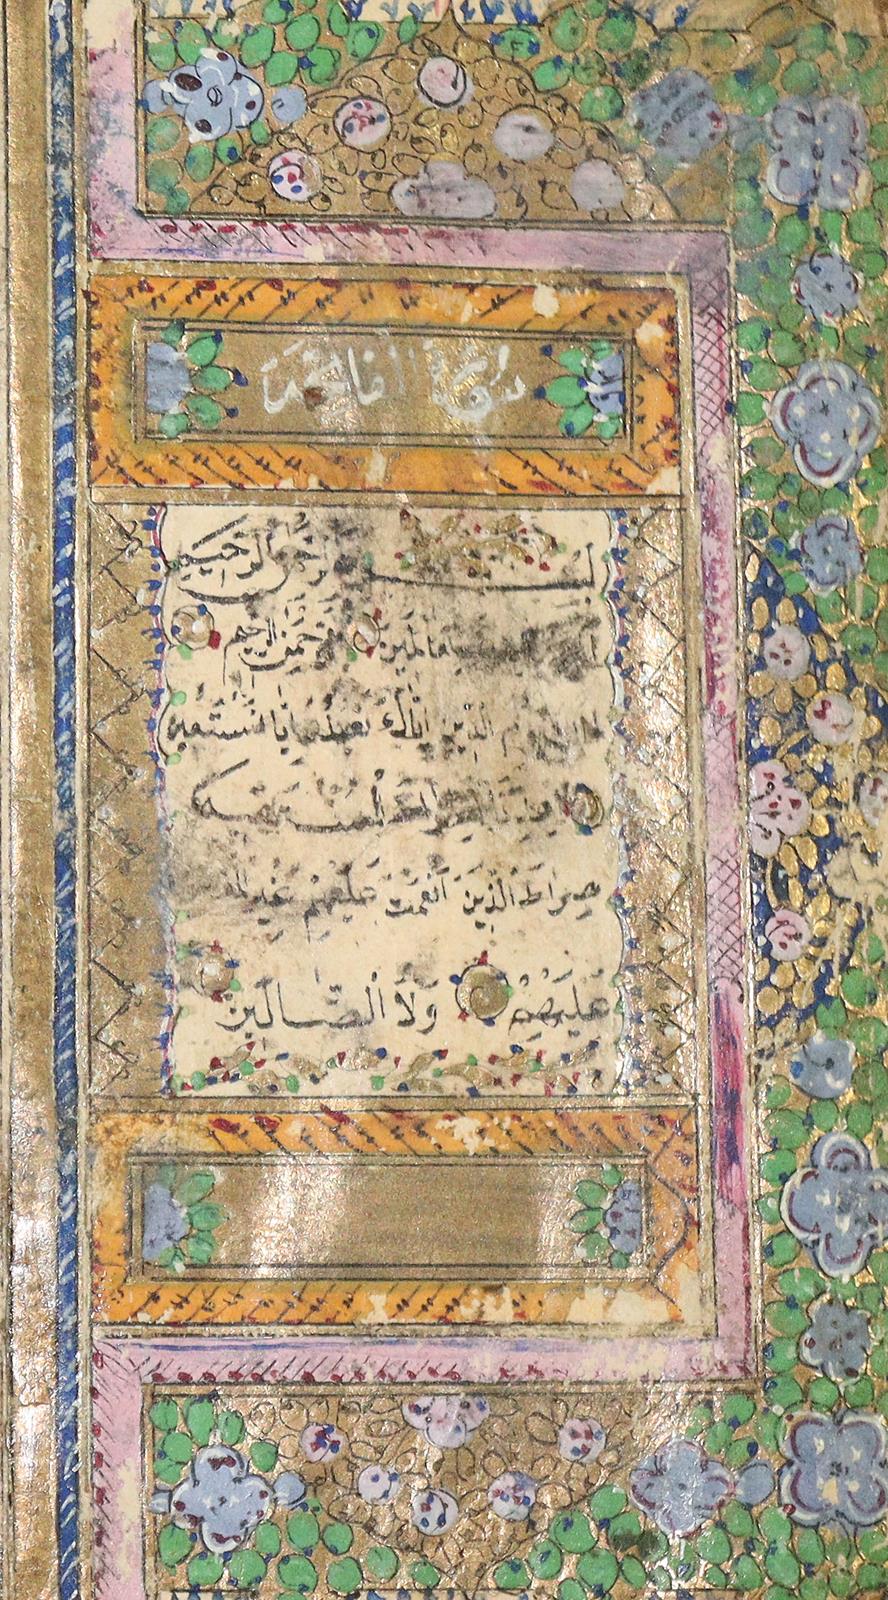 سورة الفاتحة
بسم الرحمن الرحيم
العالمين الرحمن الرحيم
الدين اياك نعبد واياك نستعين
اهدنا الصراط المستقيم
صراط الذين انعمت عليهم غير المغضوب
عَلَيْهِمْ وَلَا الضَّالّينَ